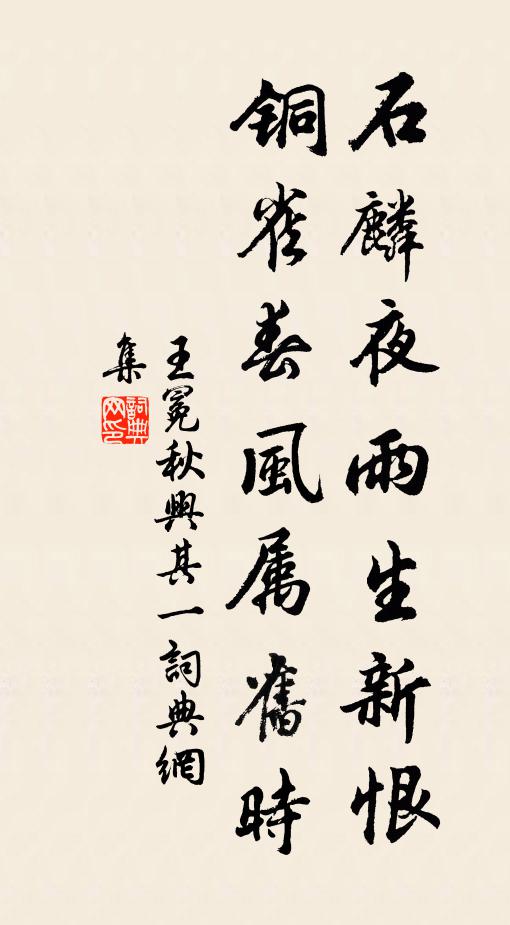 石麟夜雨生新恨
铜雀春風属舊時
王冕秋興其一詞典網
集
詞典
网印